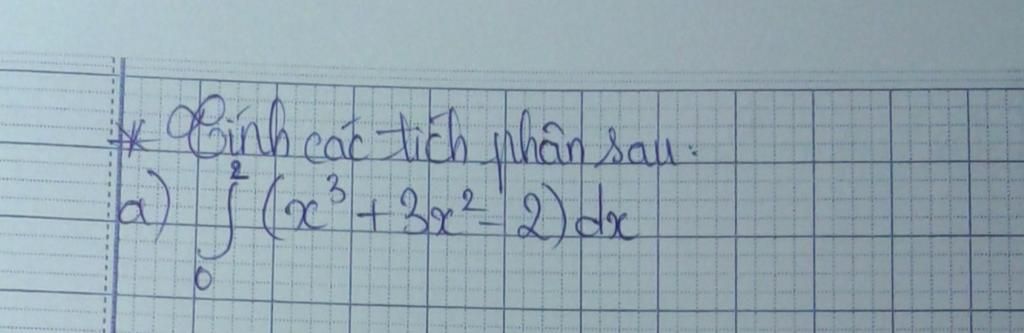 * Tính các tích phân sau.
a) ∫₀² (x³ + 3x² - 2) dx